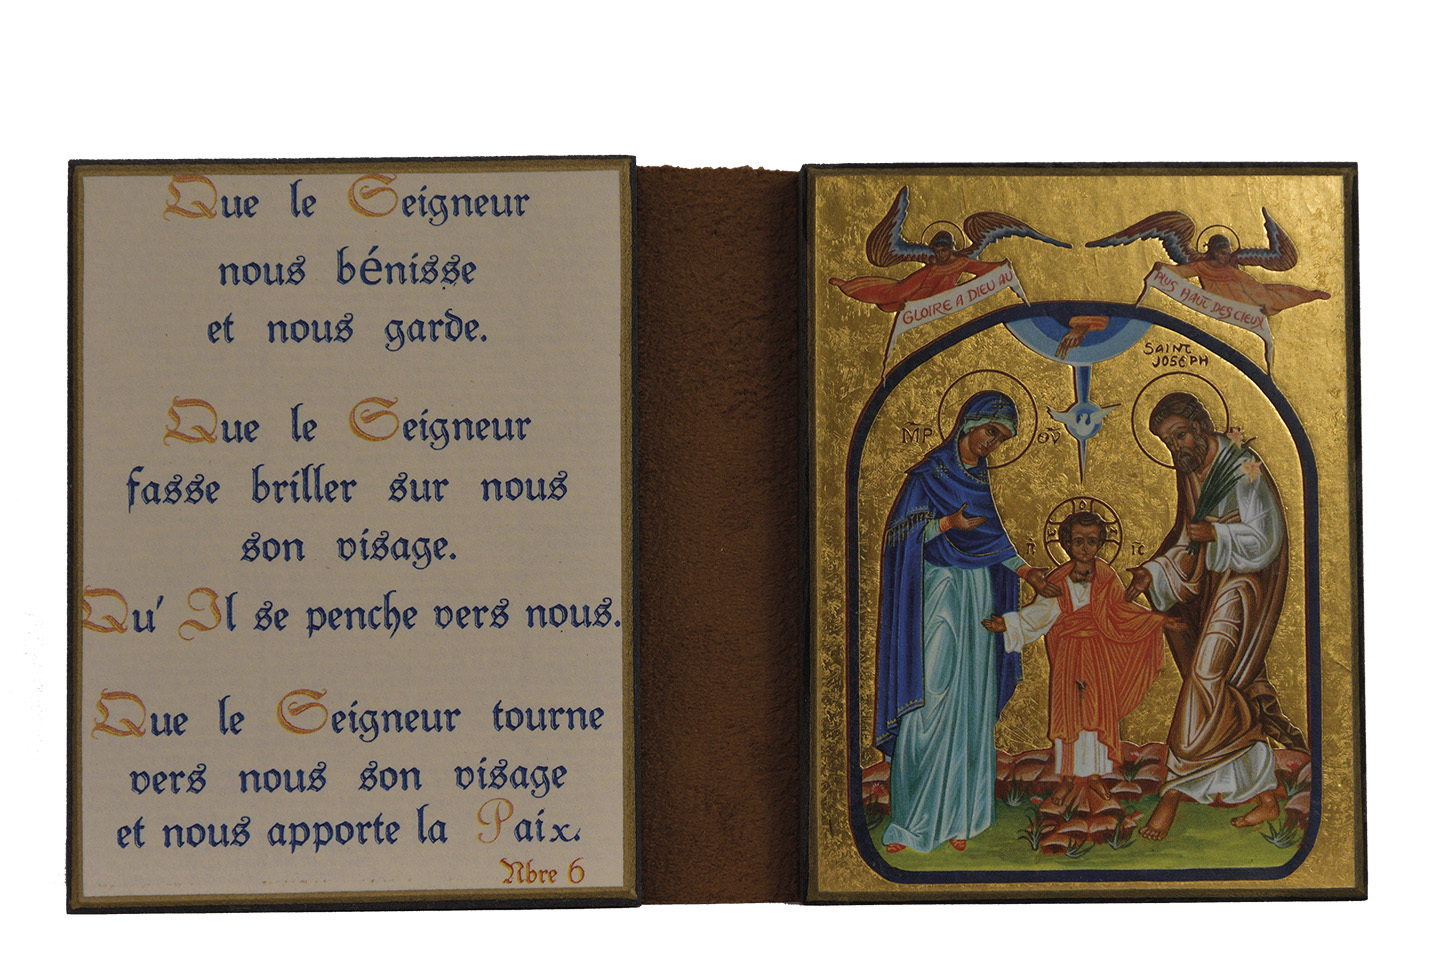 Que le Seigneur
nous bénisse
et nous garde.
Que le Seigneur
fasse briller sur nous
son visage.
Qu' Il se penche vers nous.
Que le Seigneur tourne
vers nous son visage
et nous apporte la Paix.
Nbre 6
GLOIRE A DIEU AU
PLUS HAUT DES CIEUX
SAINT
JOSEPH
M̃Р ѲѶ